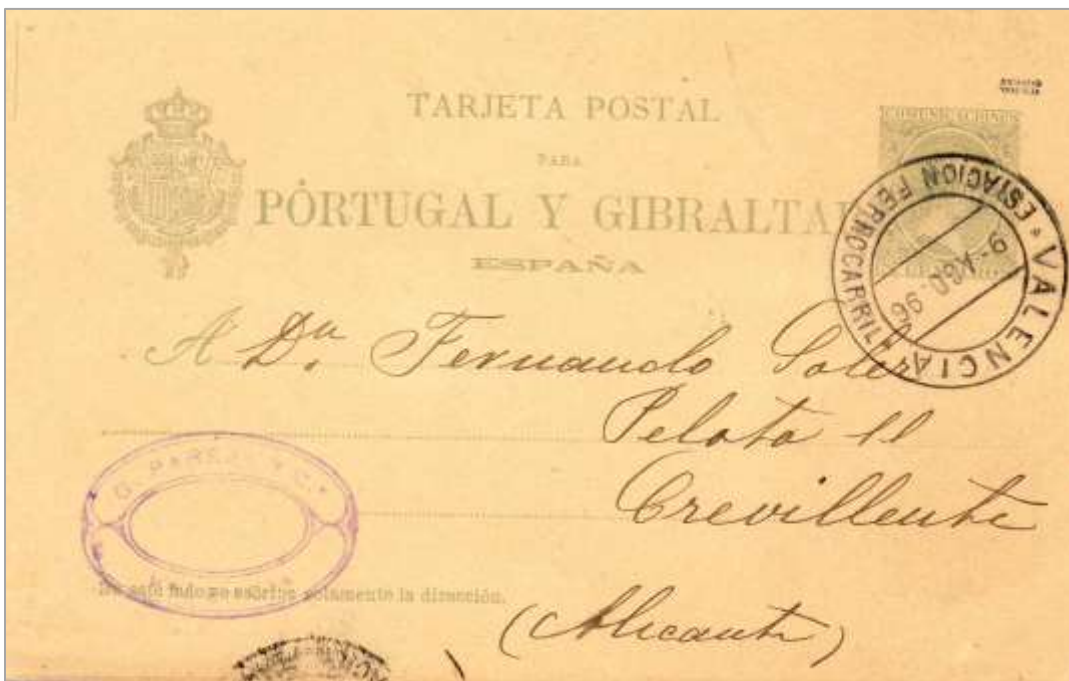 TARJETA POSTAL
PARA
PORTUGAL Y GIBRALTAR
ESPAÑA
VALENCIA
ESTACION FERROCARRIL
9 - AGO. 96
A Dn. Fernando Soler
Pelota 11
Crevillente
(Alicante)
En este lado se escribe solamente la dirección.